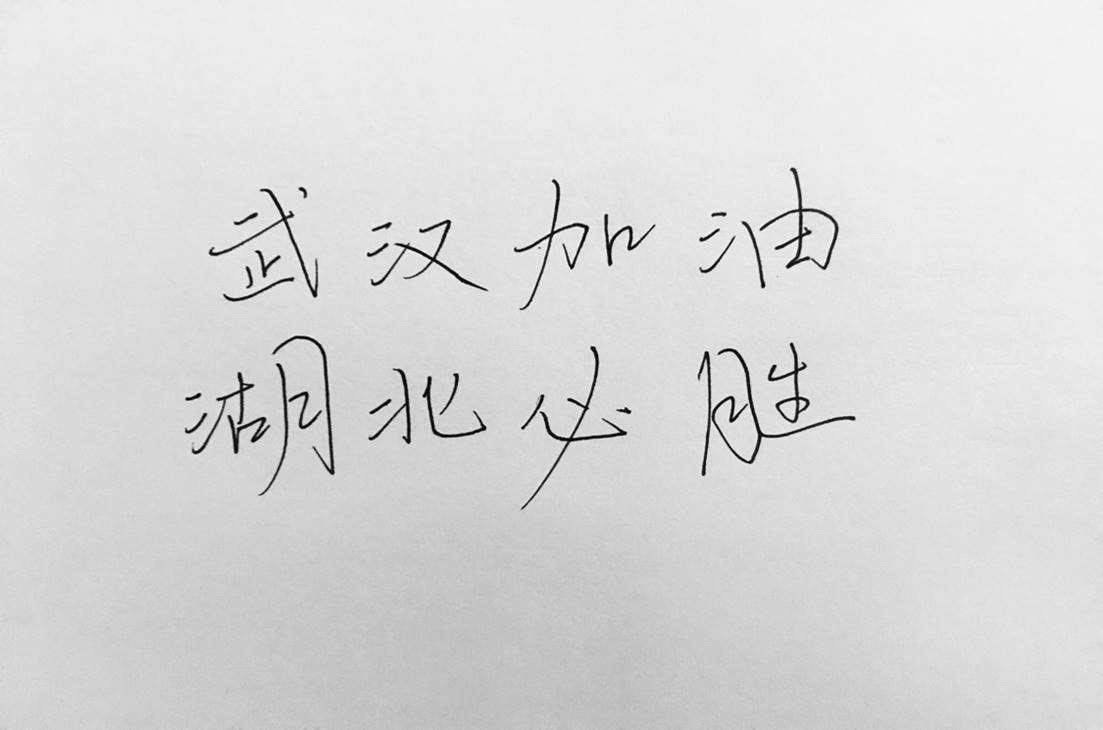 武汉加油
湖北必胜